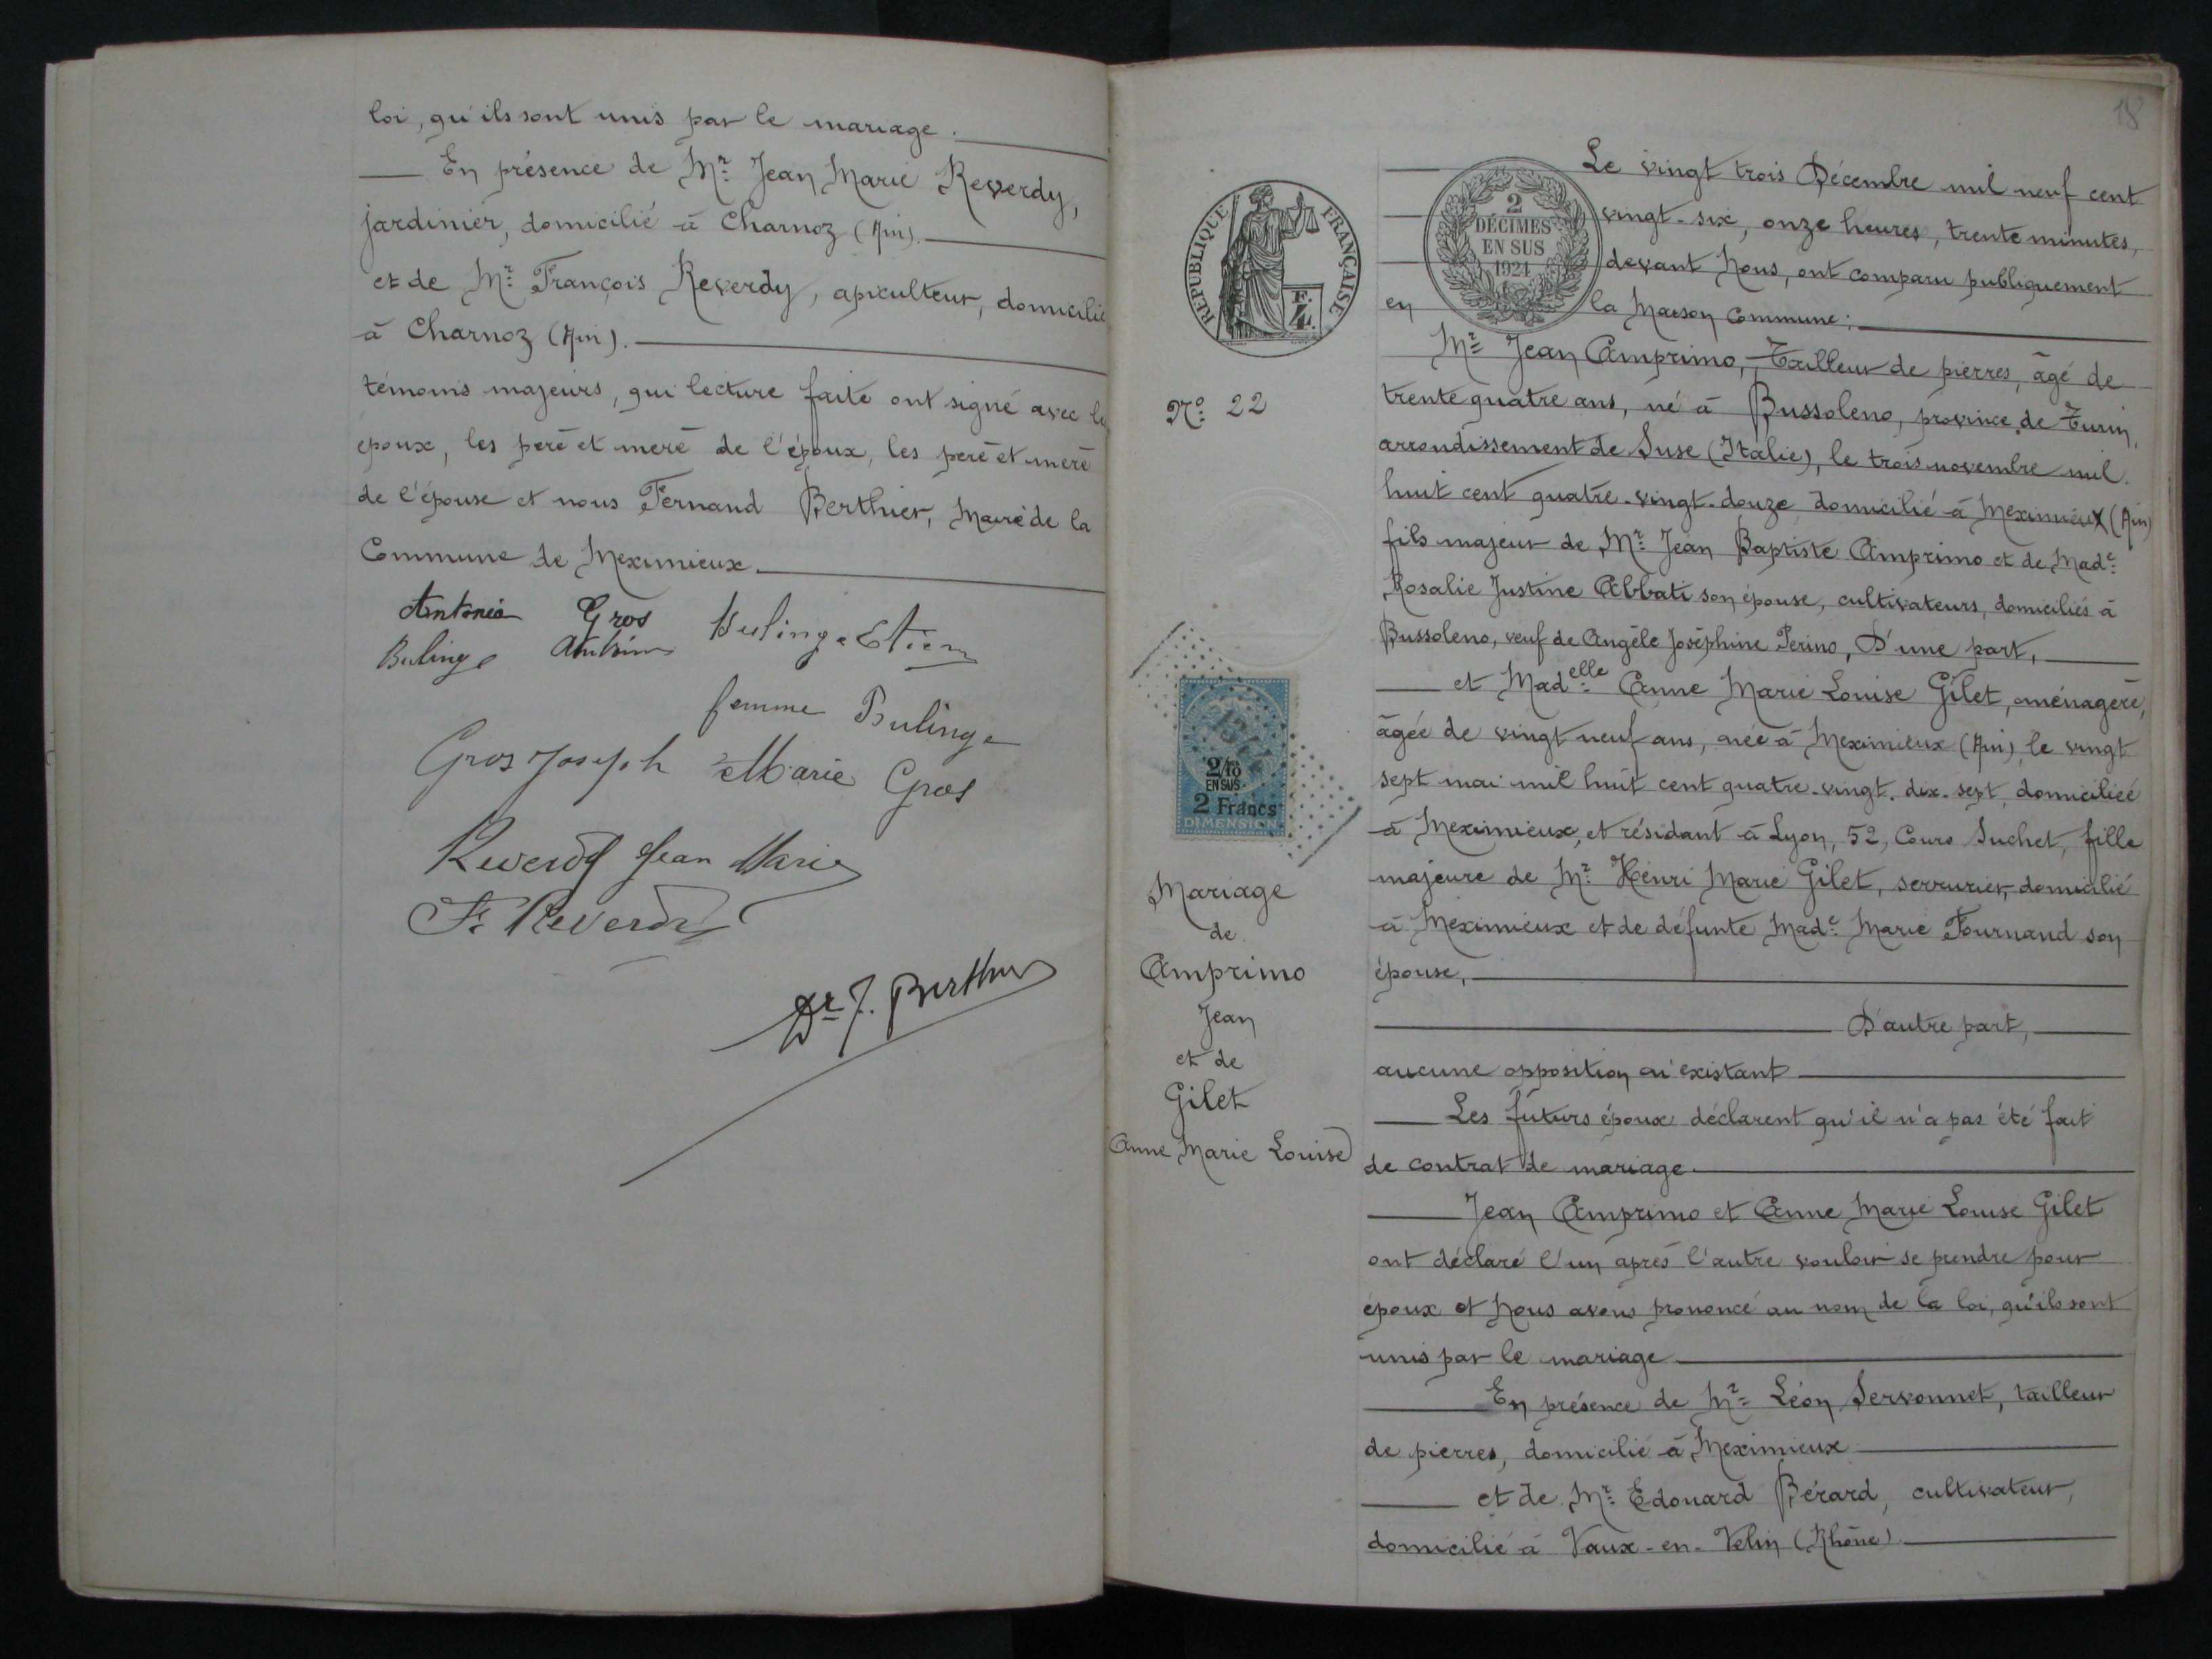 loi, qu'ils sont unis par le mariage.
En présence de Mr. Jean Marie Reverdy,
jardinier, domicilié à Charnoz (Ain).
et de Mr. François Reverdy, apiculteur, domicilié
à Charnoz (Ain).
témoins majeurs, qui lecture faite ont signé avec les
époux, les père et mère de l'époux, les père et mère
de l'épouse et nous Fernand Berthier, Maire de la
Commune de Meximieux.
Antonia Gros Bulinge
Bulinge Antoine
femme Bulinge
Gros Joseph Marie Gros
Reverdy Jean Marie
F. Reverdy
Dr F. Berthier
18
RÉPUBLIQUE FRANÇAISE
F. 4.
2
DÉCIMES
EN SUS
1921
Le vingt trois Décembre mil neuf cent
vingt-six, onze heures, trente minutes,
devant Nous, ont comparu publiquement
en la Maison Commune:
Mr Jean Amprimo, Tailleur de pierres, âgé de
trente quatre ans, né à Bussoleno, province de Turin,
arrondissement de Suse (Italie), le trois novembre mil
huit cent quatre-vingt-douze, domicilié à Meximieux (Ain)
fils majeur de Mr. Jean Baptiste Amprimo et de Made.
Rosalie Justine Abbati son épouse, cultivateurs, domiciliés à
Bussoleno, veuf de Angèle Joséphine Perino, D'une part,
et Madelle Anne Marie Louise Gilet, ménagère,
âgée de vingt neuf ans, née à Meximieux (Ain), le vingt
sept mai mil huit cent quatre-vingt-dix-sept, domiciliée
à Meximieux, et résidant à Lyon, 52, Cours Suchet, fille
majeure de Mr. Henri Marie Gilet, serrurier, domicilié
à Meximieux et de défunte Made. Marie Fournand son
épouse,
D'autre part,
aucune opposition n'existant
Les futurs époux déclarent qu'il n'a pas été fait
de contrat de mariage.
Jean Amprimo et Anne Marie Louise Gilet
ont déclaré l'un après l'autre vouloir se prendre pour
époux et Nous avons prononcé au nom de la loi, qu'ils sont
unis par le mariage
En présence de Mr. Léon Servonnet, tailleur
de pierres, domicilié à Meximieux
et de Mr. Edouard Bérard, cultivateur,
domicilié à Vaux-en-Velin (Rhône).
No. 22
2/10
EN SUS
2 Francs
DIMENSION
Mariage
de
Amprimo
Jean
et de
Gilet
Anne Marie Louise